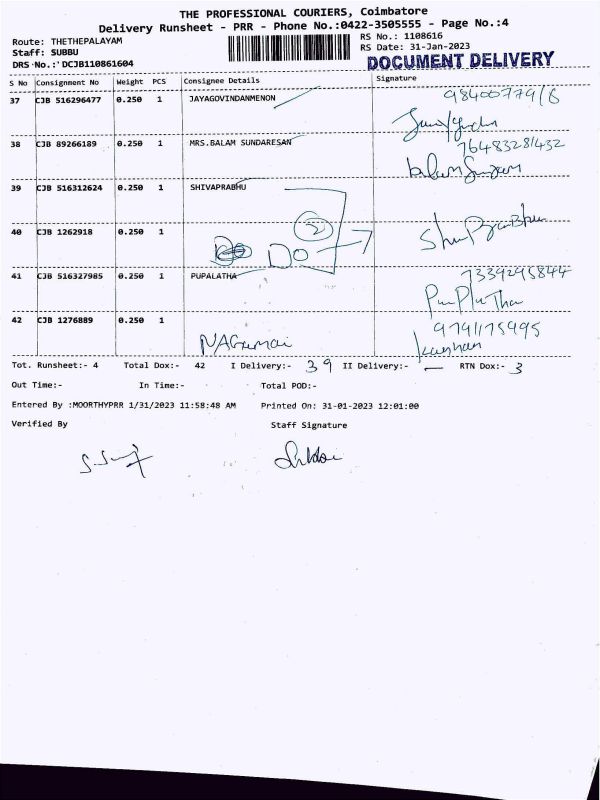 THE PROFESSIONAL COURIERS, Coimbatore
Delivery Runsheet - PRR - Phone No.:0422-3505555 - Page No.:4
Route: THETHEPALAYAM RS No.: 1108616
Staff: SUBBU RS Date: 31-Jan-2023
DRS No.: DCJB110861604 DOCUMENT DELIVERY
S No Consignment No Weight PCS Consignee Details Signature
37 CJB 516296477 0.250 1 JAYAGOVINDANMENON
38 CJB 89266189 0.250 1 MRS.BALAM SUNDARESAN
39 CJB 516312624 0.250 1 SHIVAPRABHU
40 CJB 1262918 0.250 1
2
DO
41 CJB 516327985 0.250 1 PUPALATHA 7339295844
42 CJB 1276889 0.250 1 9791175495
Tot. Runsheet:- 4 Total Dox:- 42 I Delivery:- 39 II Delivery:- — RTN Dox:- 3
Out Time:- In Time:- Total POD:-
Entered By :MOORTHYPRR 1/31/2023 11:58:48 AM Printed On: 31-01-2023 12:01:00
Verified By Staff Signature